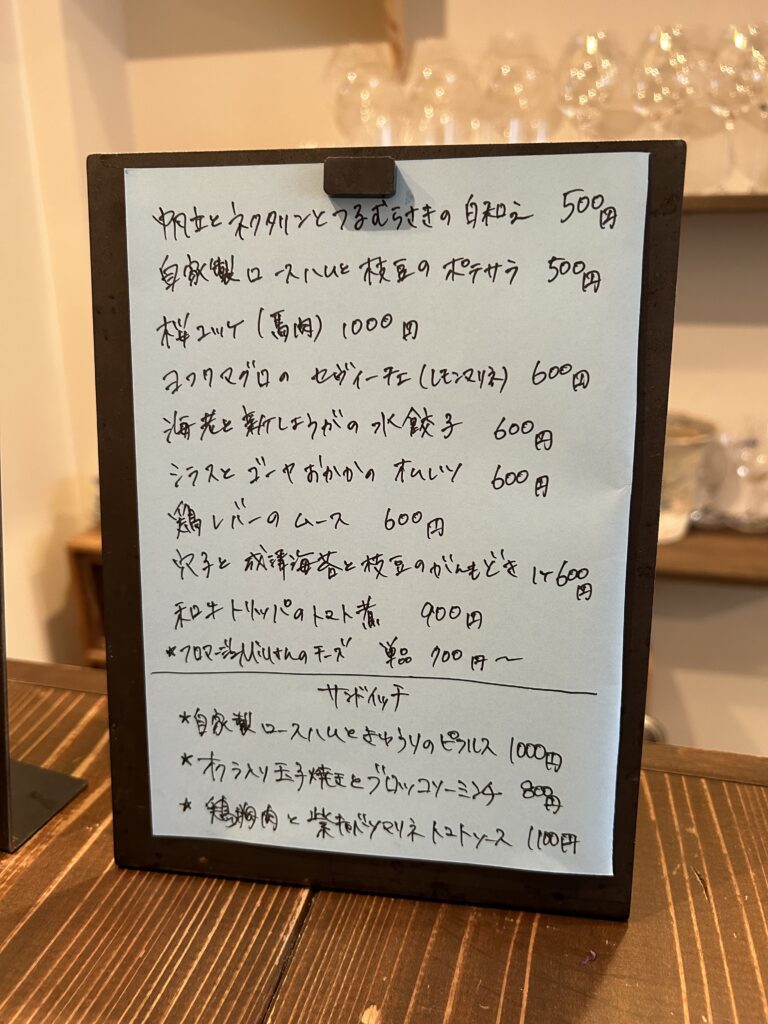 帆立とネクタリンとつるむらさきの白和え 500円
自家製ロースハムと枝豆のポテサラ 500円
桜ユッケ(馬肉) 1000円
ヨコワマグロの セヴィーチェ(レモンマリネ) 600円
海老と新しょうがの水餃子 600円
シラスとゴーヤおかかの オムレツ 600円
鶏レバーのムース 600円
穴子と 海苔と枝豆のがんもどき 1ヶ600円
和牛トリッパのトマト煮 900円
*フロマージュ さんのチーズ 単品 700円〜
サンドイッチ
*自家製ロースハムときゅうりのピクルス 1000円
*オクラ入り玉子焼きとブロッコリーミンチ 800円
*鶏胸肉と紫キャベツマリネ トマトソース 1100円